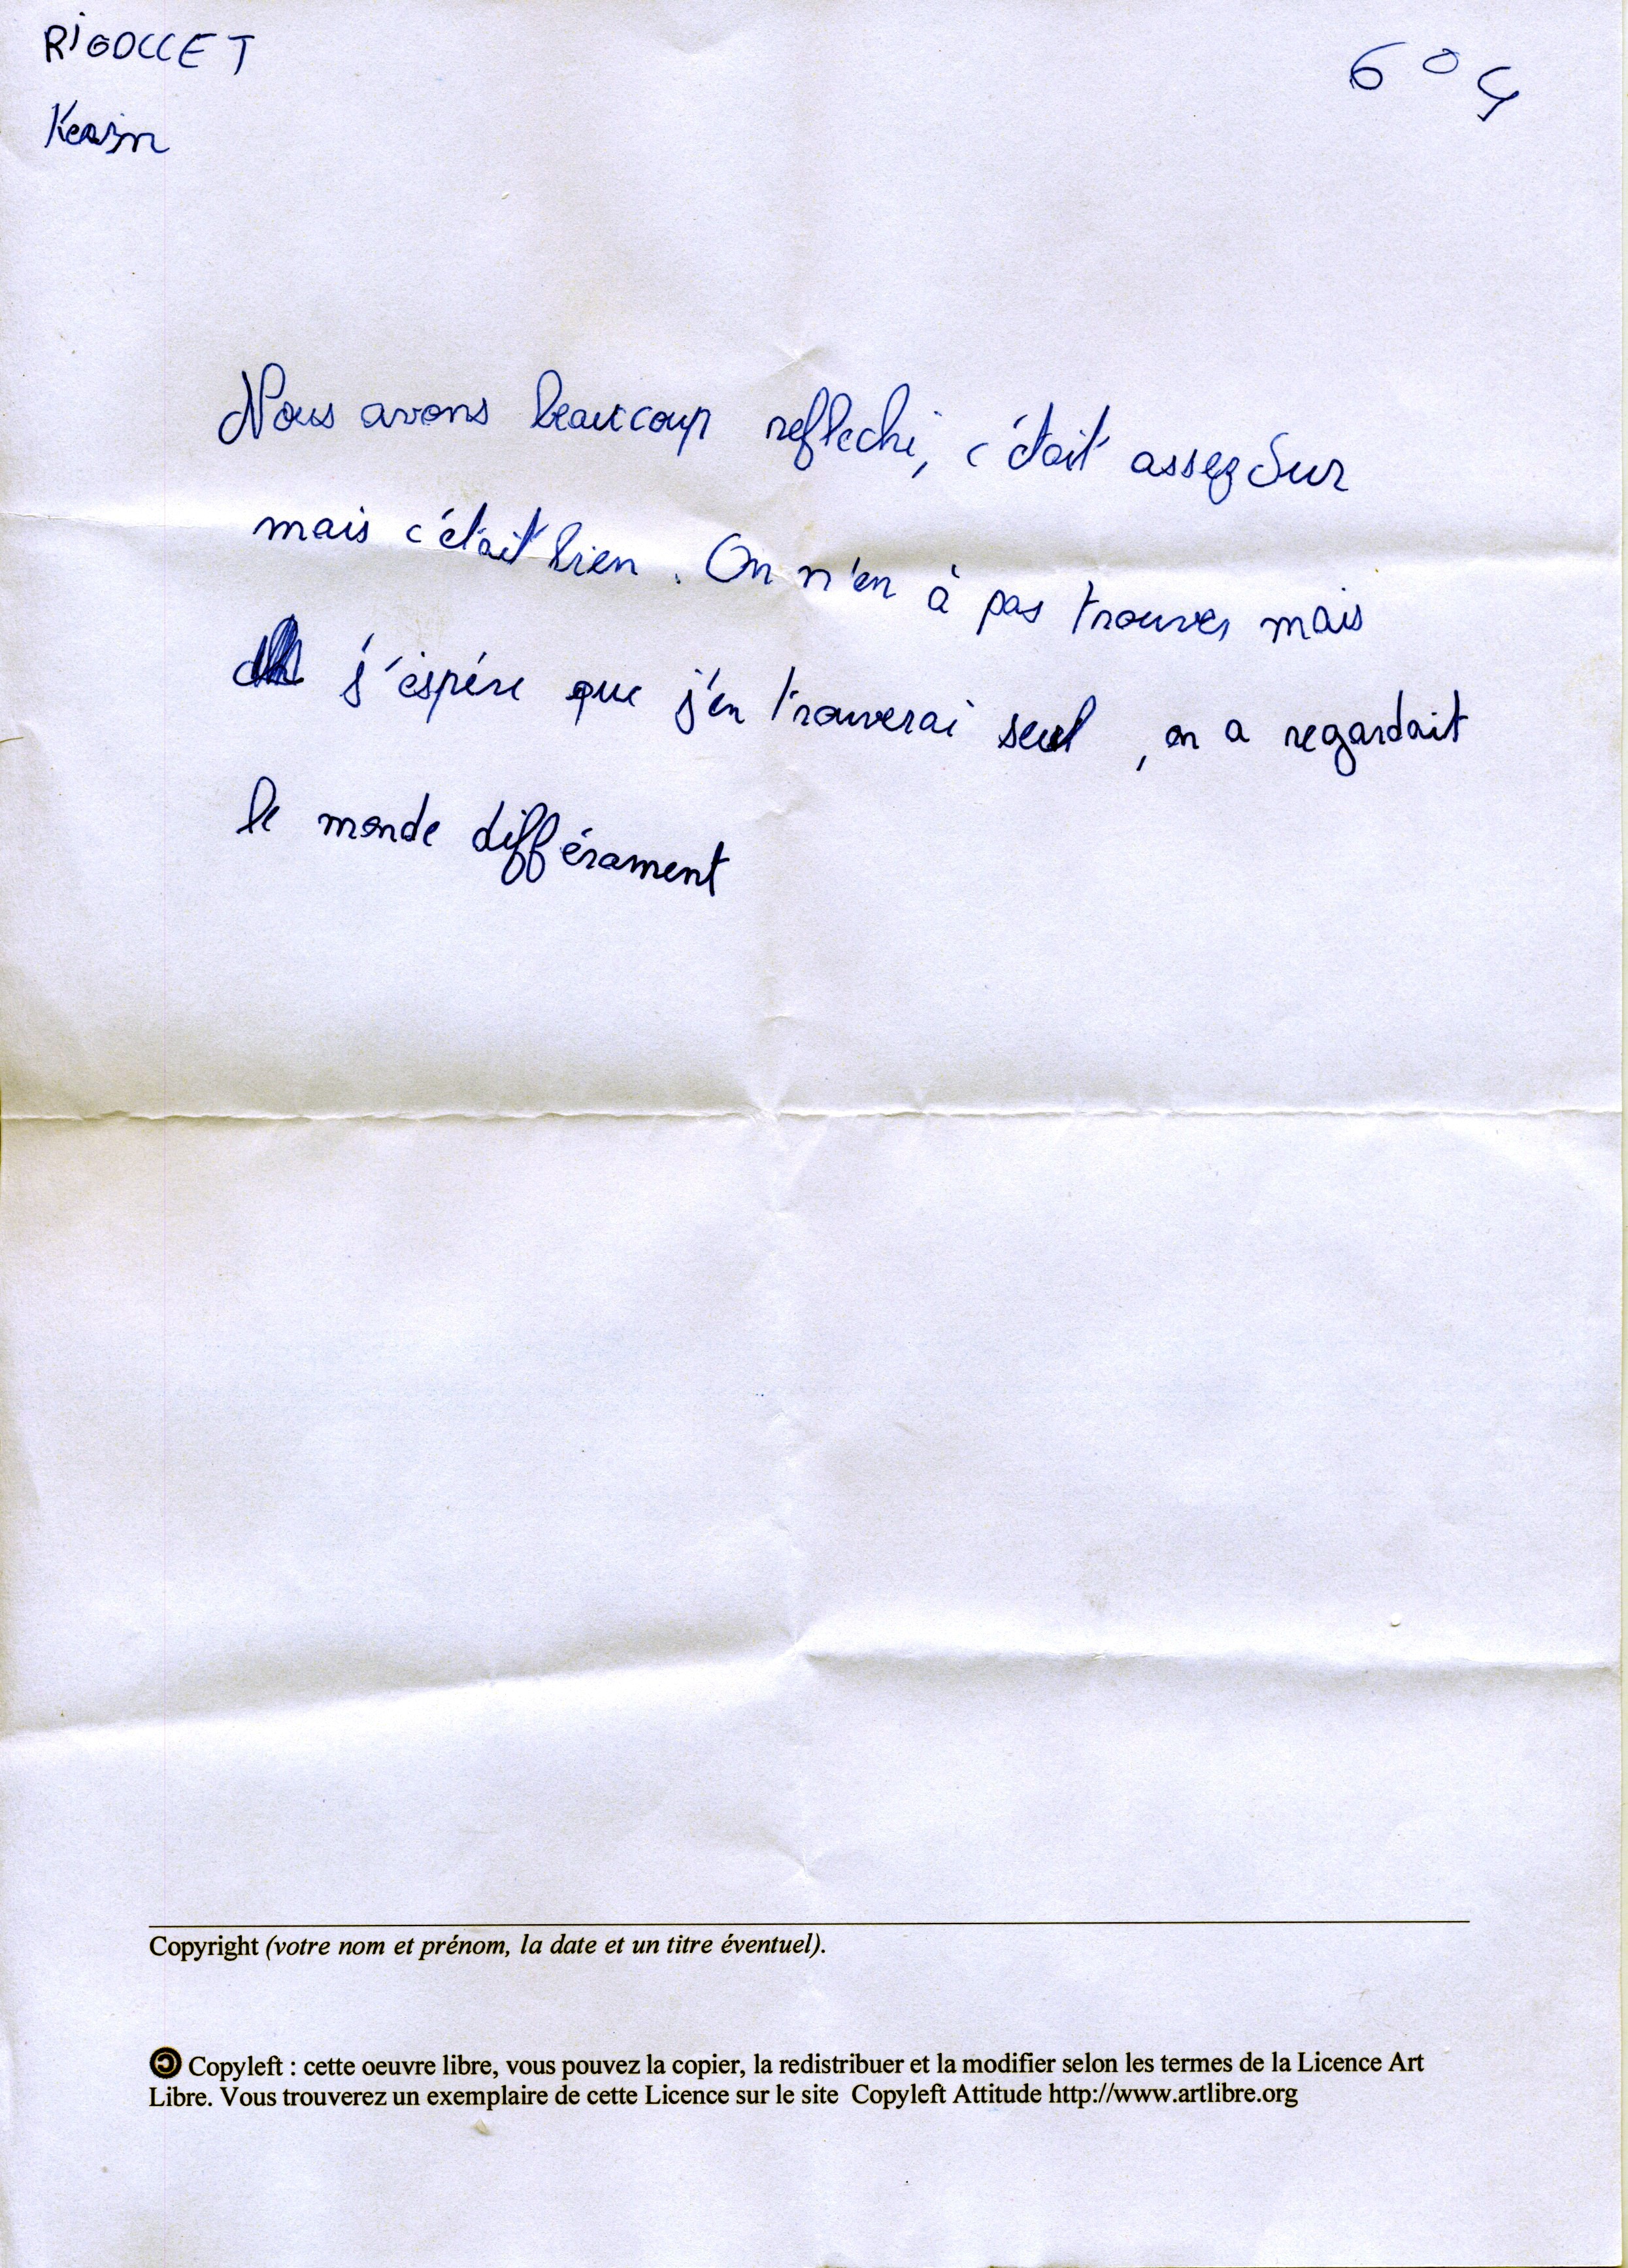 RIGOLLET
6° 4
Nous avons beaucoup reflechi, c'était assez dur
mais c'était bien. On n'en à pas trouver mais
j'éspére que j'en trouverai seul, on a regardait
le monde différament
Copyright (votre nom et prénom, la date et un titre éventuel).
Copyleft : cette oeuvre libre, vous pouvez la copier, la redistribuer et la modifier selon les termes de la Licence Art
Libre. Vous trouverez un exemplaire de cette Licence sur le site Copyleft Attitude http://www.artlibre.org